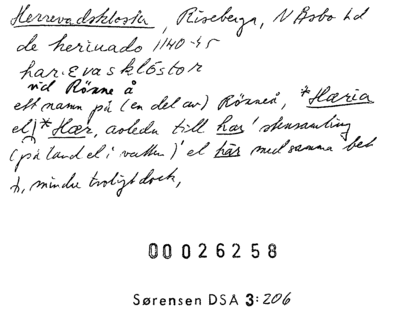 Herrevadskloster, Riseberga, N Åsbo hd
de heriuado 1140-45
har.Evasklostor
vid Rönne å
ett namn på (en del av) Rönneå, *Hæria
el) *Hær, avledn till har 'stensamling
(på land el i vatten)' el här med samma bet
h, mindre troligt dock,
00026258
Sørensen DSA 3:206